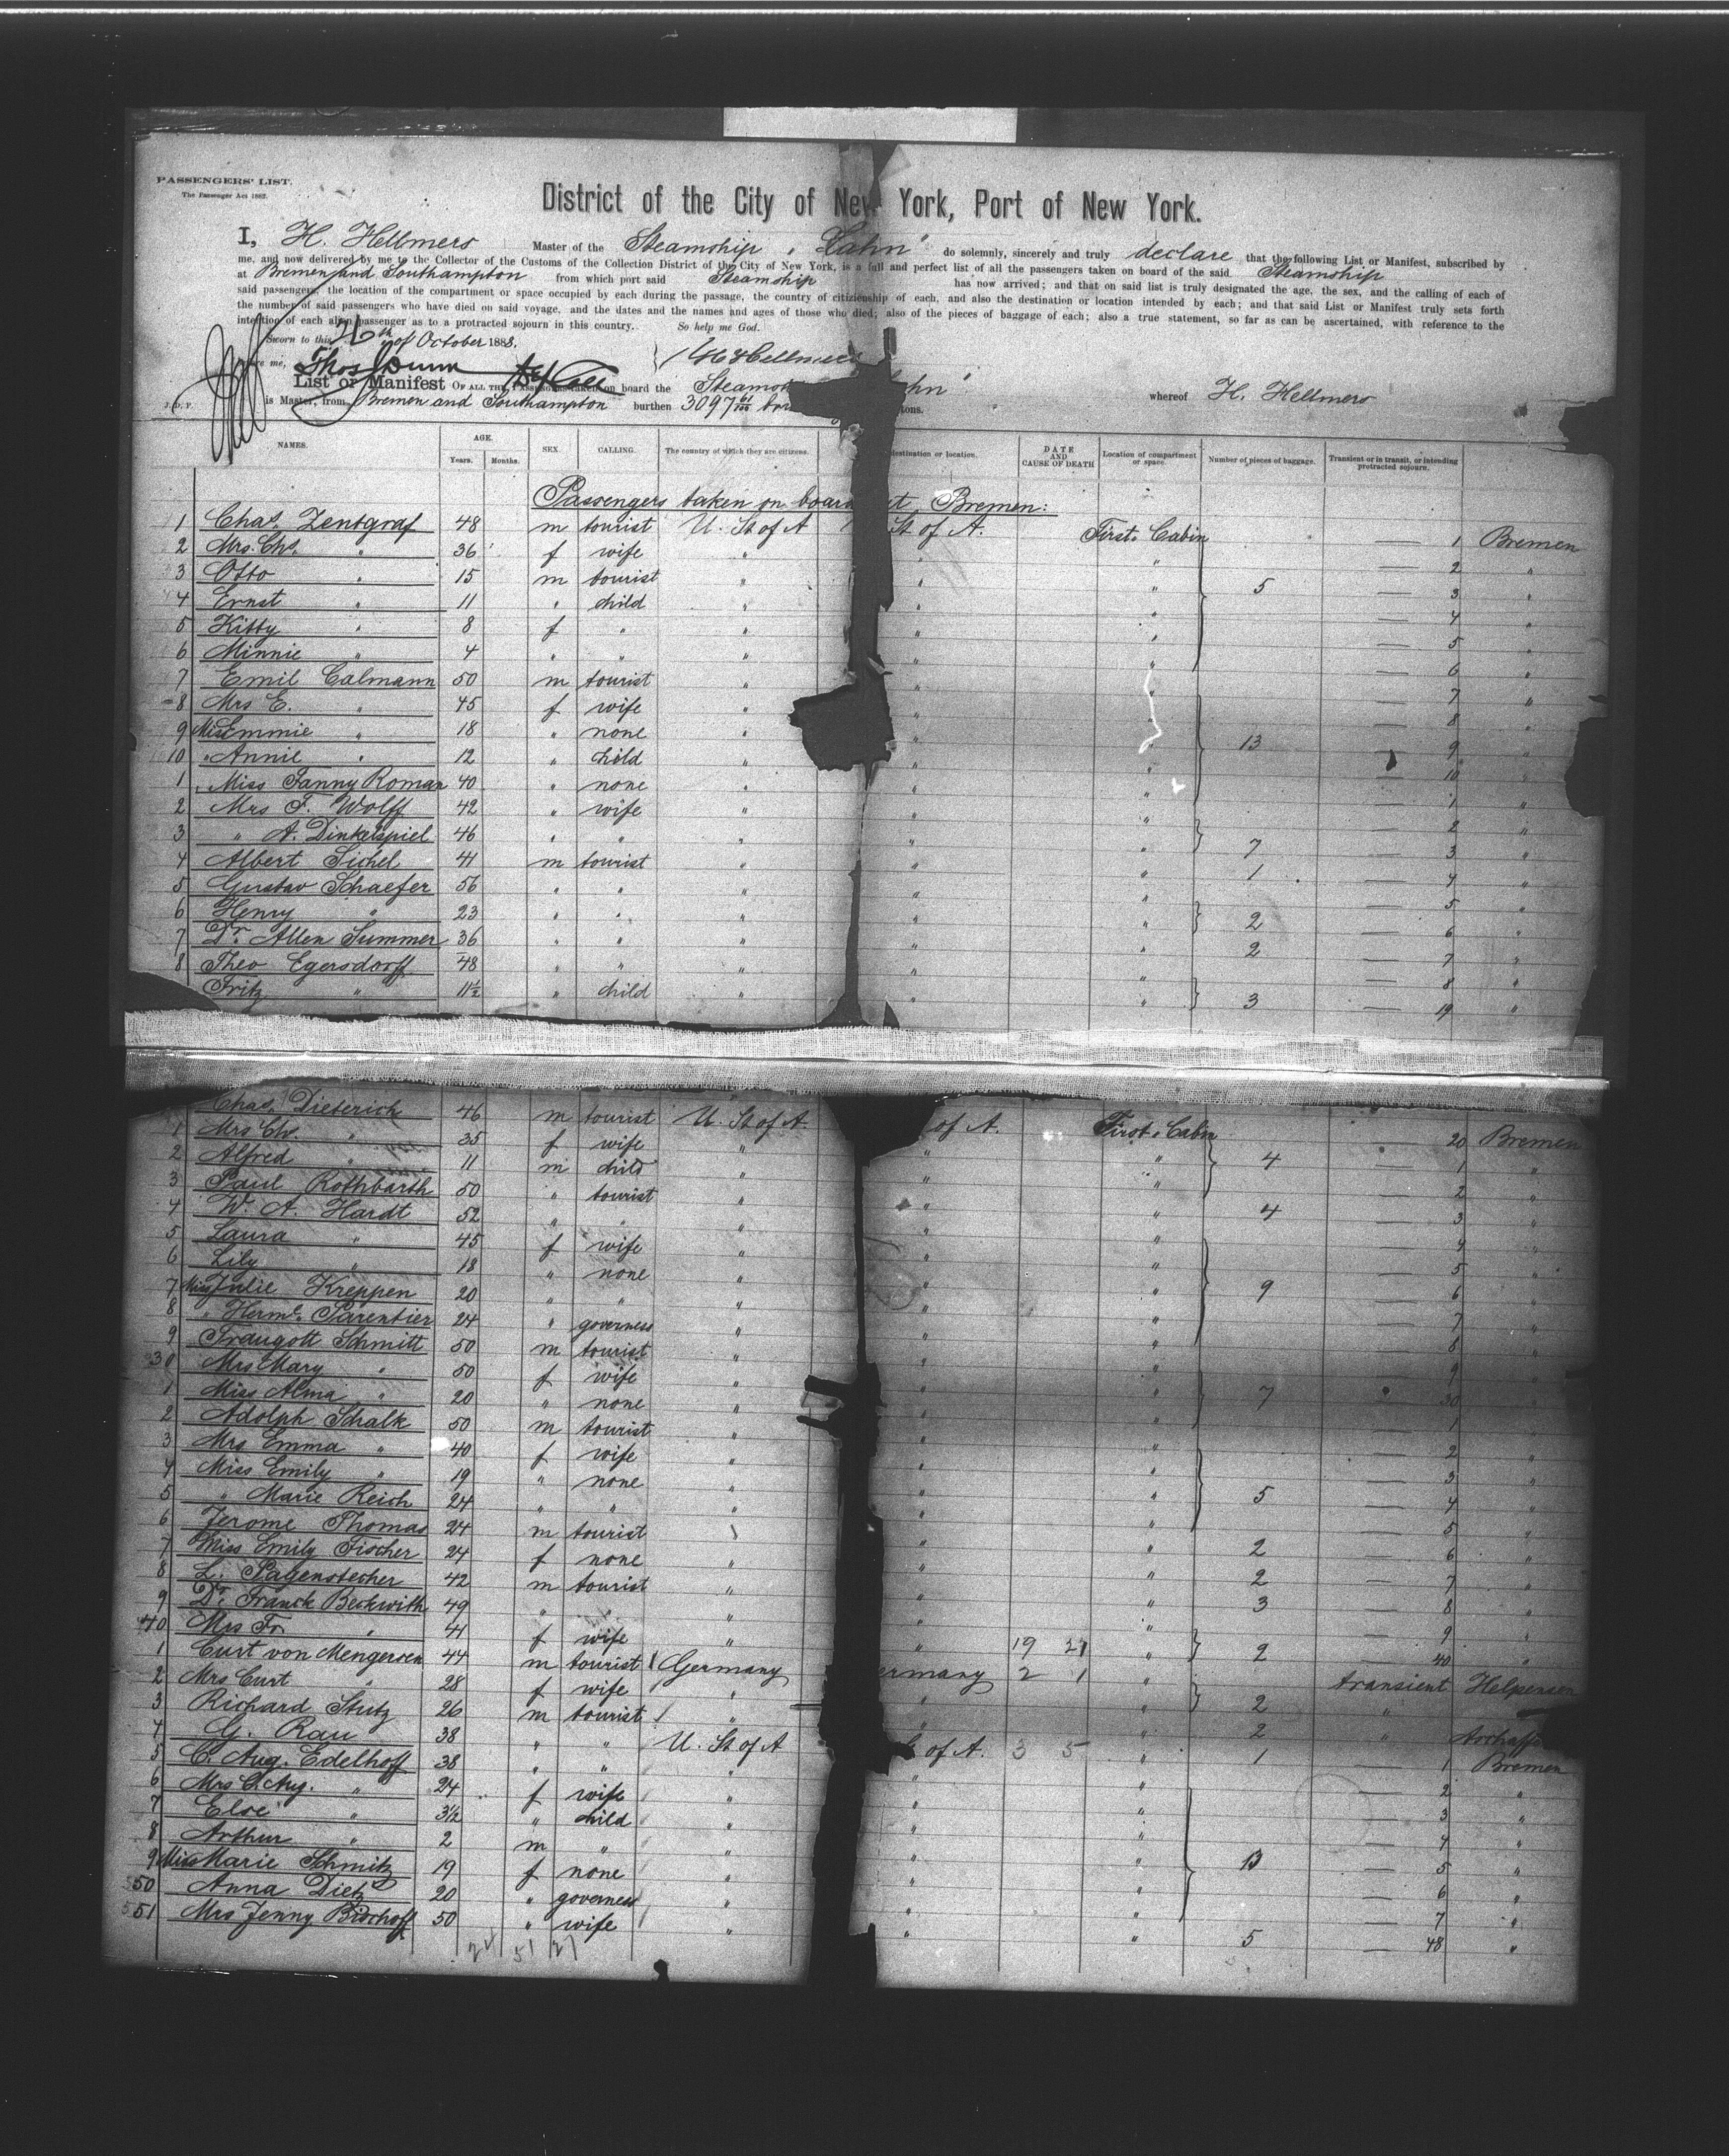 PASSENGERS' LIST.
The Passenger Act 1882.
District of the City of New York, Port of New York.
I, H. Hellmers Master of the Steamship "Lahn" do solemnly, sincerely and truly declare that the following List or Manifest, subscribed by
me, and now delivered by me to the Collector of the Customs of the Collection District of the City of New York, is a full and perfect list of all the passengers taken on board of the said Steamship
at Bremen and Southampton from which port said Steamship has now arrived; and that on said list is truly designated the age, the sex, and the calling of each of
said passengers, the location of the compartment or space occupied by each during the passage, the country of citizenship of each, and also the destination or location intended by each; and that said List or Manifest truly sets forth
the number of said passengers who have died on said voyage, and the dates and the names and ages of those who died; also of the pieces of baggage of each; also a true statement, so far as can be ascertained, with reference to the
intention of each alien passenger as to a protracted sojourn in this country. So help me God.
Sworn to this of October 1888.
me, H Hellmers
List or Manifest OF ALL THE PASSENGERS taken on board the Steamsh ahn" whereof H. Hellmers
is Master, from Bremen and Southampton burthen 3097 61/100 tons.
NAMES. AGE. Years. Months. SEX. CALLING. The country of which they are citizens. destination or location. DATE AND CAUSE OF DEATH Location of compartment or space. Number of pieces of baggage. Transient or in transit, or intending protracted sojourn.
Passengers taken on board at Bremen:
1 Chas. Zentgraf 48 m tourist U. St of A St of A. First Cabin — 1 Bremen
2 Mrs. Chs. " 36 f wife " " " — 2 "
3 Otto " 15 m tourist " " " 5 — 3 "
4 Ernst " 11 " child " " " — 4 "
5 Kitty " 8 f " " " " — 5 "
6 Minnie " 4 " " " " " — 6 "
7 Emil Calmann 50 m tourist " " " — 7 "
8 Mrs E. " 45 f wife " " " — 8 "
9 Miss Emmie " 18 " none " " " 13 — 9 "
10 " Annie " 12 " child " " " — 10 "
1 Miss Fanny Roman 40 " none " " " — 1 "
2 Mrs F. Wolff 42 " wife " " " — 2 "
3 " A. Dinkelspiel 46 " " " " " 7 — 3 "
4 Albert Sichel 41 m tourist " " " 1 — 4 "
5 Gustav Schaefer 56 " " " " " — 5 "
6 Henry " 23 " " " " " 2 — 6 "
7 Dr. Allen Summer 36 " " " " " 2 — 7 "
8 Theo Egersdorff 48 " " " " " — 8 "
Fritz " 11½ " child " " " 3 — 19 "
Chas. Dieterich 46 m tourist U. St of A. of A. First Cabin — 20 Bremen
1 Mrs Ch. " 35 f wife " " " 4 — 1 "
2 Alfred " 11 m child " " " — 2 "
3 Paul Rothbarth 50 " tourist " " " 4 — 3 "
4 W. A. Hardt 52 " " " " " — 4 "
5 Laura " 45 f wife " " " — 5 "
6 Lily " 18 " none " " " 9 — 6 "
7 Miss Julie Kreppen 20 " " " " " — 7 "
8 " Herme. Parentier 24 " governess " " " — 8 "
9 Traugott Schmitt 50 m tourist " " " — 9 "
30 Mrs Mary " 50 f wife " " " 7 — 30 "
1 Miss Alma " 20 " none " " " — 1 "
2 Adolph Schalk 50 m tourist " " " — 2 "
3 Mrs Emma " 40 f wife " " " — 3 "
4 Miss Emily " 19 " none " " " 5 — 4 "
5 " Marie Reich 24 " " " " " — 5 "
6 Jerome Thomas 24 m tourist " " 2 — 6 "
7 Miss Emily Fischer 24 f none " " " 2 — 7 "
8 L. Pagenstecher 42 m tourist " " " 3 — 8 "
9 Dr. Franck Beckwith 49 " " " " " — 9 "
40 Mrs Fr. " 41 f wife " " 19 21 " 2 — 40 "
1 Curt von Mengersen 44 m tourist Germany ermany 2 1 " transient Helpensen
2 Mrs Curt " 28 f wife " " " 2 " "
3 Richard Stutz 26 m tourist " " " 2 "
4 G. Rau 38 " " U. St of A of A. 3 5 " 1 — 1 Bremen
5 C. Aug. Edelhoff 38 " " " " " — 2 "
6 Mrs C. Aug. " 24 f wife " " " — 3 "
7 Else " 3½ " child " " " — 4 "
8 Arthur " 2 m " " " " 13 — 5 "
9 Miss Marie Schmitz 19 f none " " " — 6 "
50 Anna Dietz 20 " governess " " " — 7 "
51 Mrs Jenny Bischoff 50 " wife " " " 5 — 48 "
24 51 27